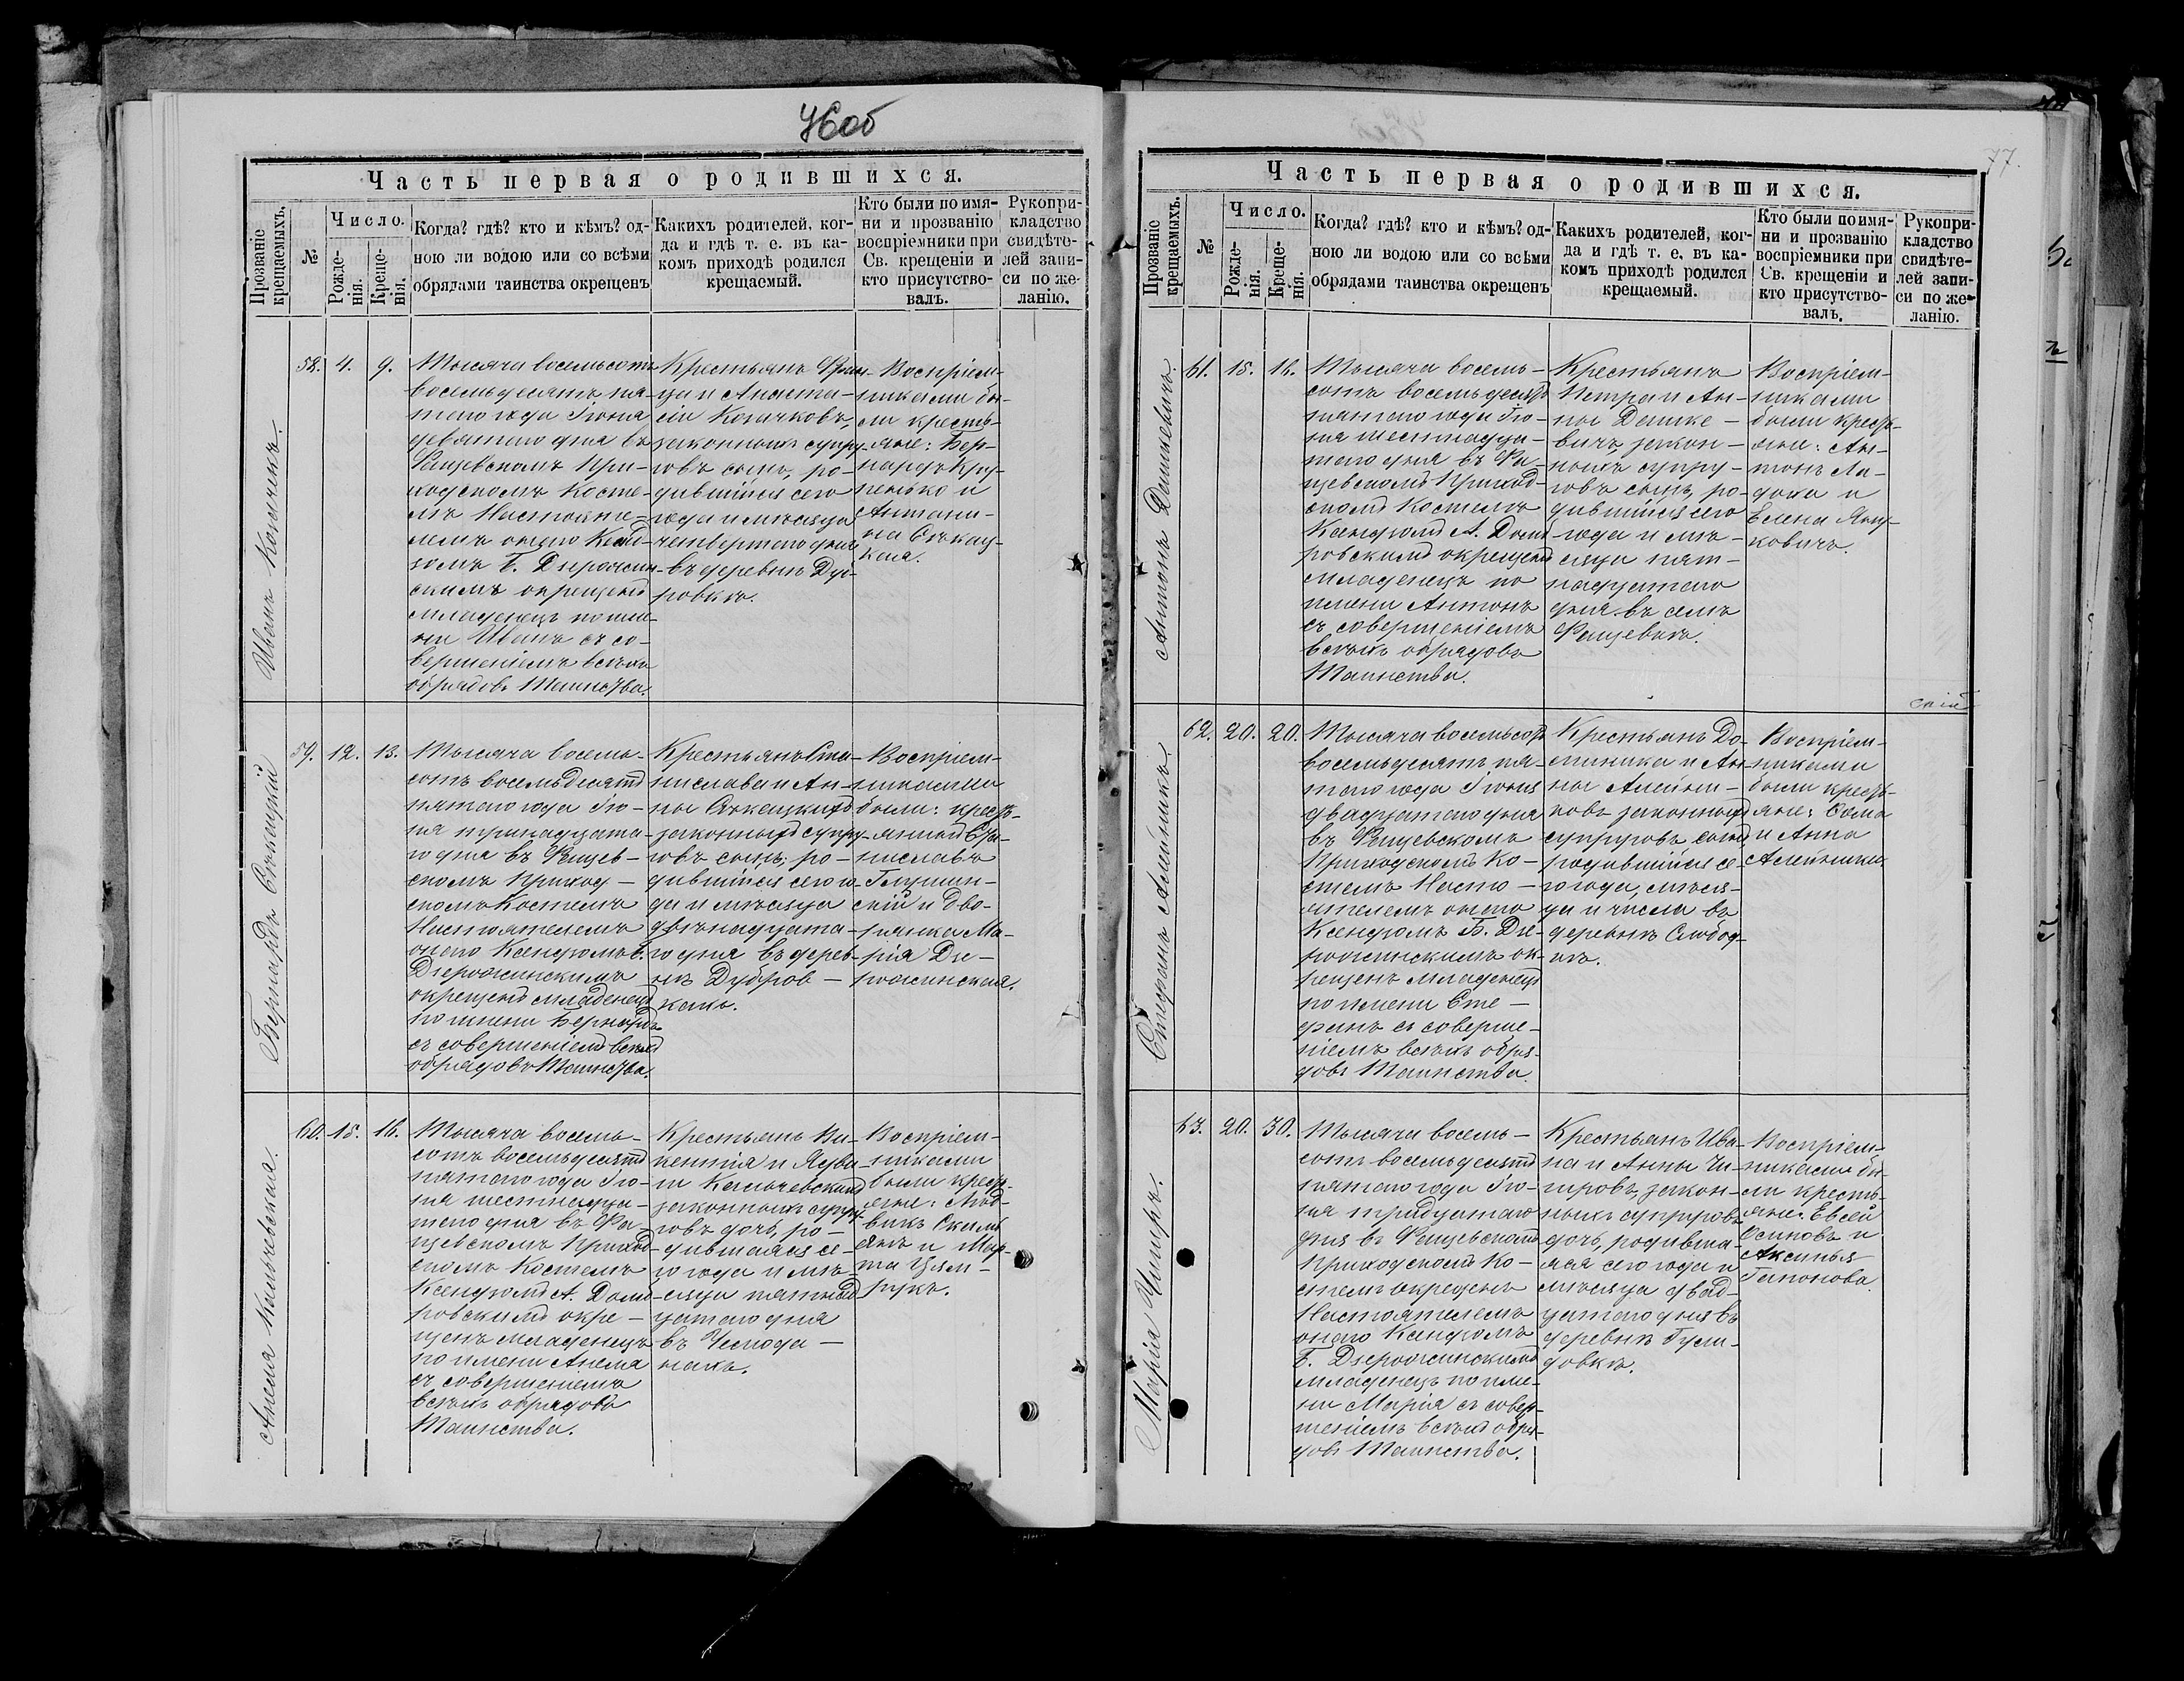 76об
Часть первая о родившихся.
Прозваніе крещаемыхъ.
№
Число.
Рожде-
нія.
Креще-
нія.
Когда? гдѣ? кто и кѣмъ? од-
ною ли водою или со всѣми
обрядами таинства окрещенъ
Какихъ родителей, ког-
да и гдѣ т. е. въ ка-
комъ приходѣ родился
крещаемый.
Кто были по имя-
ни и прозванію
воспріемники при
Св. крещеніи и
кто присутство-
валъ.
Рукопри-
кладство
свидѣте-
лей запи-
си по же-
ланію.
Иванъ
58. 4. 9.
Тысяча восемьсотъ
восемьдесятъ пя-
таго года Іюня
девятаго дня въ
Фащевскомъ При-
ходскомъ Косте-
лѣ Настояте-
лемъ онаго Ксенд-
зомъ Б. Дзерожин-
скимъ окрещенъ
младенецъ по име-
ни Иванъ съ со-
вершеніемъ всѣхъ
обрядовъ Таинства.
Крестьянъ Фран-
ца и Анаста-
сіи
законныхъ супру-
говъ сынъ, ро-
дившійся сего
года и мѣсяца
четвертаго дня
въ деревнѣ Дуб-
ровкѣ.
Воспріем-
никами бы-
ли кресть-
яне: Бер-
нардъ Кру-
пенько и
Антони-
на Сѣкац-
кая.
Бернардъ Сѣкацкій
59. 12. 13.
Тысяча восемь-
сотъ восемьдесятъ
пятаго года Ію-
ня тринадцата-
го дня въ Фащев-
скомъ Приход-
скомъ Костелѣ
Настоятелемъ
онаго Ксендзомъ Б.
Дзерожинскимъ
окрещенъ младенецъ
по имени Бернардъ
съ совершеніемъ всѣхъ
обрядовъ Таинства.
Крестьянъ Ста-
нислава и Ан-
ны Сѣкацкихъ
законныхъ супру-
говъ сынъ, ро-
дившійся сего го-
да и мѣсяца
двѣнадцата-
го дня въ дерев-
нѣ Дубров-
кахъ.
Воспріем-
никами
были: кресть-
янинъ Ста-
ниславъ
Глушин-
скій и Дво-
рянка Ма-
рія Дзе-
рожинская.
Анеля Кальчевская.
60. 15. 16.
Тысяча восемь-
сотъ восемьдесятъ
пятаго года Ію-
ня шестнадца-
таго дня въ Фа-
щевскомъ Приход-
скомъ Костелѣ
Ксендзомъ А. Домб-
ровскимъ окре-
щенъ младенецъ
по имени Анеля
съ совершеніемъ
всѣхъ обрядовъ
Таинства.
Крестьянъ Ви-
кентія и Ядви-
ги Кальчевскихъ
законныхъ супру-
говъ дочь, ро-
дившаяся се-
го года и мѣ-
сяца пятнад-
цатаго дня
въ
Воспріем-
никами
были кресть-
яне: Люд-
викъ
и Мар-
та
77.
Часть первая о родившихся.
Прозваніе крещаемыхъ.
№
Число.
Рожде-
нія.
Креще-
нія.
Когда? гдѣ? кто и кѣмъ? од-
ною ли водою или со всѣми
обрядами таинства окрещенъ
Какихъ родителей, ког-
да и гдѣ т. е. въ ка-
комъ приходѣ родился
крещаемый.
Кто были по имя-
ни и прозванію
воспріемники при
Св. крещеніи и
кто присутство-
валъ.
Рукопри-
кладство
свидѣте-
лей запи-
си по же-
ланію.
Антонъ Дешкевичъ.
61. 15. 16.
Тысяча восемь-
сотъ восемьдесятъ
пятаго года Ію-
ня шестнадца-
таго дня въ Фа-
щевскомъ Приход-
скомъ Костелѣ
Ксендзомъ А. Домб-
ровскимъ окрещенъ
младенецъ по
имени Антонъ
съ совершеніемъ
всѣхъ обрядовъ
Таинства.
Крестьянъ
Петра и Ан-
ны Дешке-
вичъ, закон-
ныхъ супру-
говъ сынъ, ро-
дившійся сего
года и мѣ-
сяца пят-
надцатаго
дня въ селѣ
Фащевкѣ.
Воспріем-
никами
были кресть-
яне: Ан-
тонъ
и
Елена Яцу-
ковичъ.
скій
Стефанъ Алейникъ.
62. 20. 20.
Тысяча восемьсотъ
восемьдесятъ пя-
таго года Іюня
двадцатаго дня
въ Фащевскомъ
Приходскомъ Ко-
стелѣ Насто-
ятелемъ онаго
Ксендзомъ Б. Дзе-
рожинскимъ ок-
рещенъ младенецъ
по имени Сте-
фанъ съ соверше-
ніемъ всѣхъ обря-
довъ Таинства.
Крестьянъ До-
миника и Ан-
ны Алейни-
ковъ законныхъ
супруговъ сынъ
родившійся се-
го года, мѣся-
ца и числа въ
деревнѣ Слобод-
кѣ.
Воспріем-
никами
были кресть-
яне: Ѳома
и Анна
Алейники.
Марія Чигиръ.
63. 20. 30.
Тысяча восемь-
сотъ восемьдесятъ
пятаго года Ію-
ня тридцатаго
дня въ Фащевскомъ
Приходскомъ Ко-
стелѣ окрещенъ
Настоятелемъ
онаго Ксендзомъ
Б. Дзерожинскимъ
младенецъ по име-
ни Марія съ совер-
шеніемъ всѣхъ обря-
довъ Таинства.
Крестьянъ Ива-
на и Анны Чи-
гировъ, закон-
ныхъ супруговъ
дочь, родивша-
яся сего года и
мѣсяца двад-
цатаго дня въ
деревнѣ Гули-
довкѣ.
Воспріем-
никами бы-
ли кресть-
яне: Евсей
Осиповъ и
Аксинья
Гапонова.